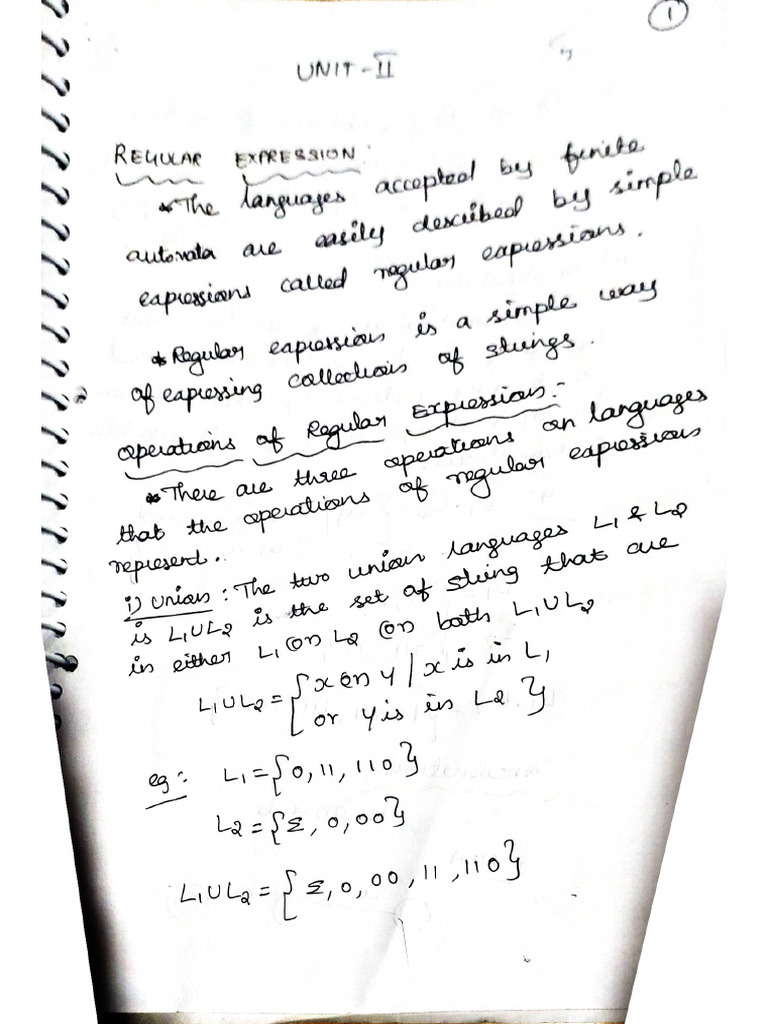 1
UNIT-II
REGULAR EXPRESSION:
* The languages accepted by finite
automata are easily described by simple
expressions called regular expressions.
* Regular expression is a simple way
of expressing collections of strings.
operations of Regular Expression:-
* There are three operations on languages
that the operations of regular expressions
represent.
i) Union: The two union languages L1 & L2
is L1UL2 is the set of string that are
in either L1 (or) L2 (or) both L1UL2
L1UL2 = { x or y / x is in L1
or y is in L2 }
eg: L1 = {0, 11, 110}
L2 = {Σ, 0, 00}
L1UL2 = {Σ, 0, 00, 11, 110}